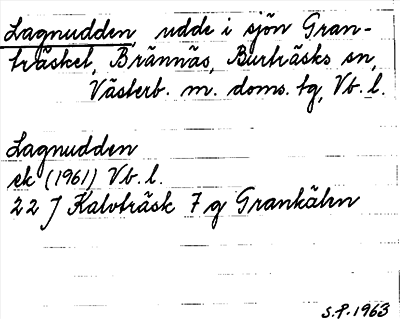 Lagnudden, udde i sjön Gran-
träsket, Brännäs, Burträsks sn,
Västerb. m. doms. tg, Vb. l.
Lagnudden
ek (1961) Vb. l.
22 J Kalvträsk 7 g Grankälen
S.P. 1963